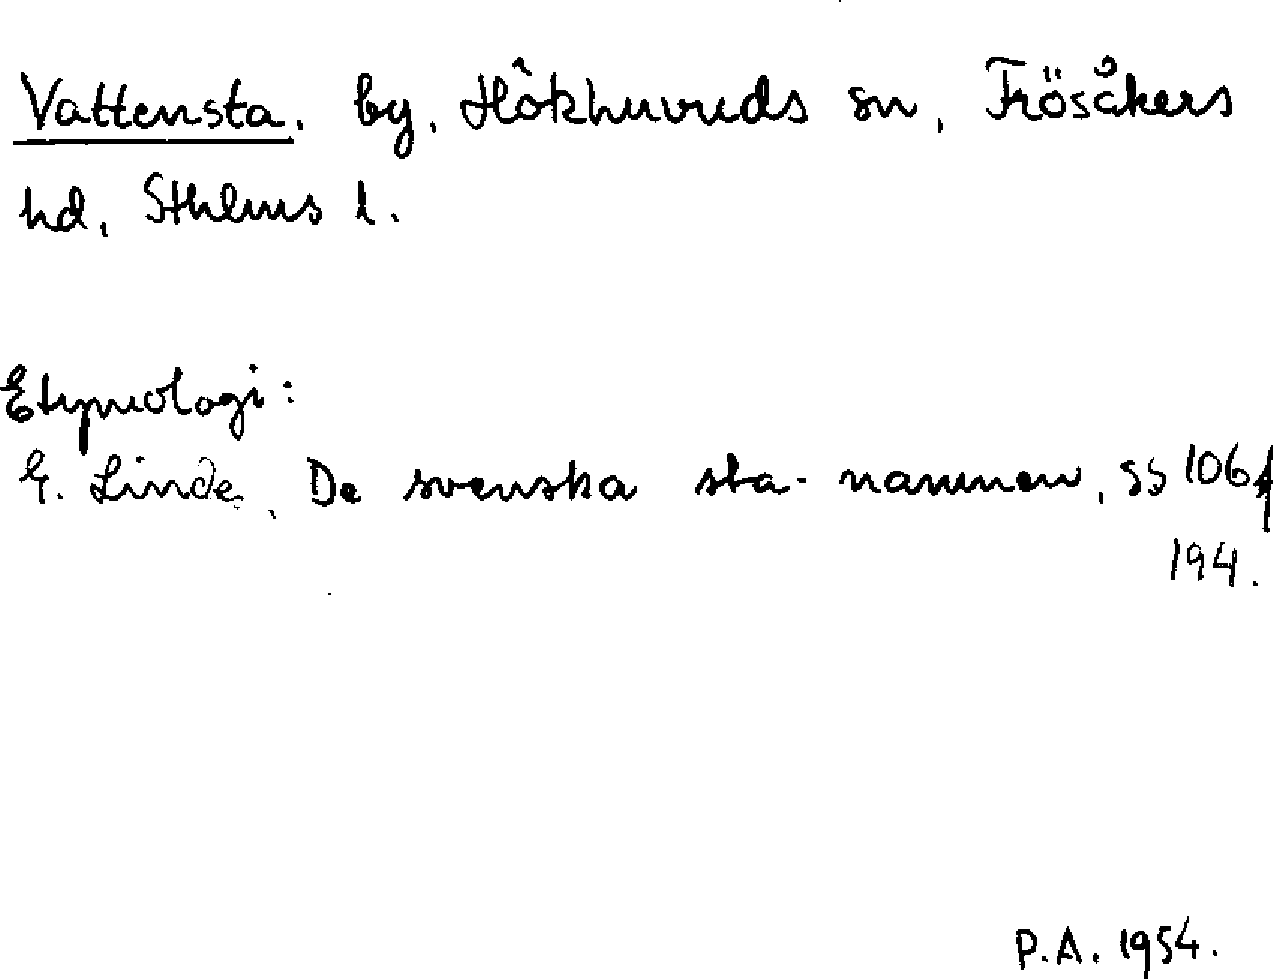 Vattensta. by, Hökhuvuds sn, Frösåkers
hd, Sthlms l.
Etymologi:
G. Linde, De svenska sta-namnen, ss 106f
194.
P.A. 1954.